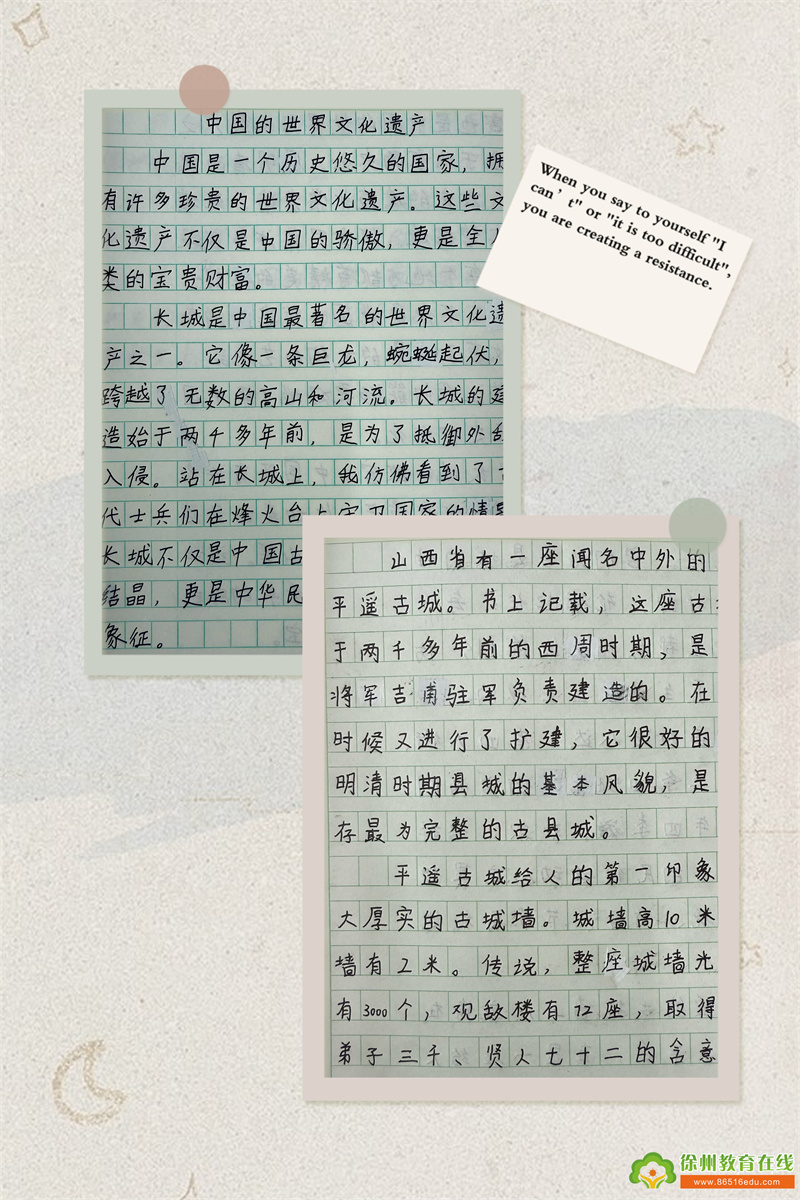 中国的世界文化遗产
中国是一个历史悠久的国家，拥
有许多珍贵的世界文化遗产。这些文
化遗产不仅是中国的骄傲，更是全人
类的宝贵财富。
长城是中国最著名的世界文化遗
产之一。它像一条巨龙，蜿蜒起伏，
跨越了无数的高山和河流。长城的建
造始于两千多年前，是为了抵御外敌
入侵。站在长城上，我仿佛看到了古
代士兵们在烽火台上守卫国家的情景
长城不仅是中国古
结晶，更是中华民
象征。
When you say to yourself "I
can't" or "it is too difficult",
you are creating a resistance.
山西省有一座闻名中外的
平遥古城。书上记载，这座古
于两千多年前的西周时期，是
将军吉甫驻军负责建造的。在
时候又进行了扩建，它很好的
明清时期县城的基本风貌，是
存最为完整的古县城。
平遥古城给人的第一印象
大厚实的古城墙。城墙高10米
墙有2米。传说，整座城墙光
有3000个，观敌楼有72座，取得
弟子三千、贤人七十二的含意
徐州教育在线
www.86516edu.com